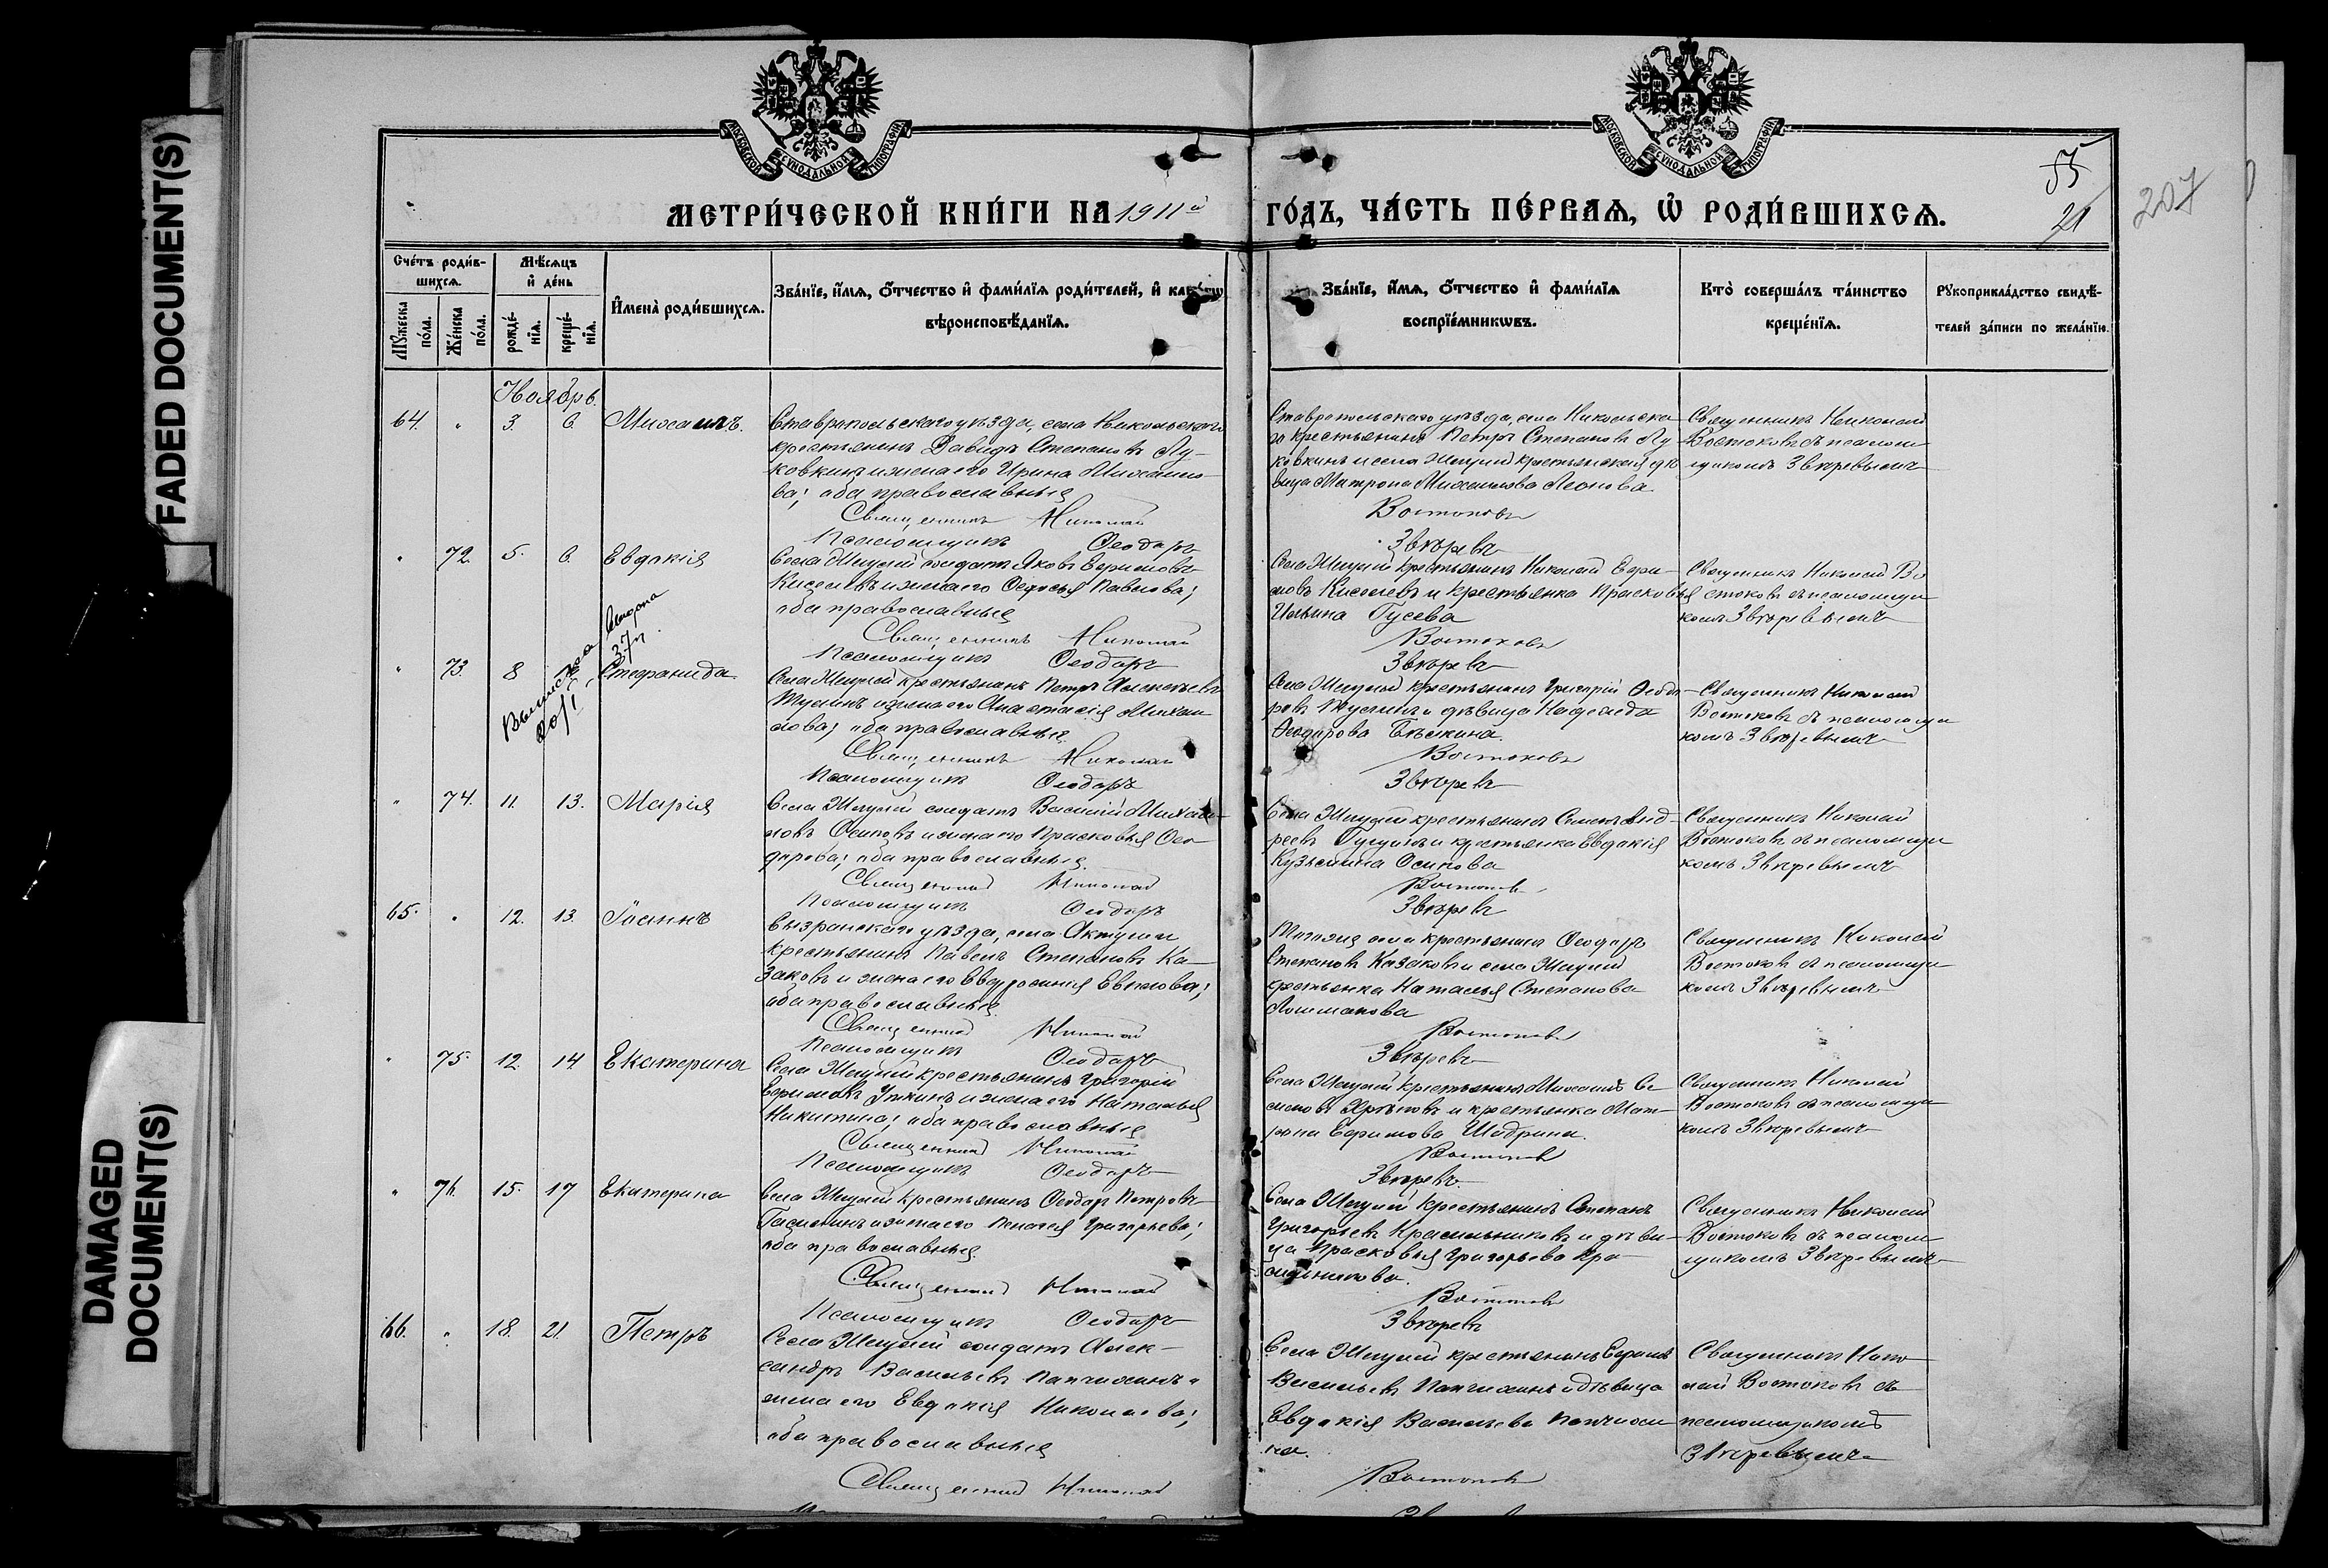 FADED DOCUMENT(S)
DAMAGED
DOCUMENT(S)
МОСКОВСКОЙ СѴНОДАЛЬНОЙ ТИПОГРАФІИ
МОСКОВСКОЙ СѴНОДАЛЬНОЙ ТИПОГРАФІИ
МЕТРИ́ЧЕСКОЙ КНИ́ГИ НА 1911й
ГО́ДЪ, ЧА́СТЬ ПЕ́РВАѦ, Ѡ҆ РОДИ́ВШИХСѦ.
55
21
207
Сче́тъ роди́в-
шихсѧ.
Мꙋ́жеска
по́ла.
Же́нска
по́ла.
Мѣ́сѧцъ
и҆ де́нь
рожде́-
нїѧ.
креще́-
нїѧ.
И҆мена̀ роди́вшихсѧ.
Зва́нїе, и҆́мѧ, ѻ҆́тчество и҆ фами́лїѧ роди́телей, и҆ како́гѡ
вѣроисповѣ́данїѧ.
Зва́нїе, и҆́мѧ, ѻ҆́тчество и҆ фами́лїѧ
воспрїе́мникѡвъ.
Кто̀ соверша́лъ та́инство
креще́нїѧ.
Рꙋкоприкла́дство свидѣ́-
телей за́писи по жела́нїю.
Ноябрь.
64. " 3. 6. Михаилъ.
Ставропольскаго уѣзда, села Никольскаго
крестьянинъ Давидъ Степановъ Лу-
ковкинъ и жена его Ирина Михайло-
ва; оба православные
Священникъ Николай
Псаломщикъ Ѳеодоръ
Ставропольскаго уѣзда, села Никольска-
го крестьянинъ Петръ Степановъ Лу-
ковкинъ и села Жигулей крестьянская дѣ-
вица Матрона Михайлова Леонова
Востоковъ
Звѣревъ
Священникъ Николай
Востоковъ съ псалом-
щикомъ Звѣревымъ
" 72. 5. 6. Евдокія
Села Жигулей солдатъ Яковъ Ефимовъ
Киселевъ и жена его Ѳедосья Павлова;
оба православные
Священникъ Николай
Псаломщикъ Ѳеодоръ
Села Жигулей крестьянинъ Николай Ефи-
мовъ Киселевъ и крестьянка Прасковья
Ильина Гусева
Востоковъ
Звѣревъ
Священникъ Николай Во-
стоковъ съ псаломщи-
комъ Звѣревымъ
" 73. 8 Стефанида.
Села Жигулей крестьянинъ Петръ Алексѣевъ
и жена его Анастасія Михай-
лова; оба православные
Священникъ Николай
Псаломщикъ Ѳеодоръ
Села Жигулей крестьянинъ Григорій Ѳеодо-
ровъ и дѣвица Надежда
Ѳеодорова
Востоковъ
Звѣревъ
Священникъ Николай
Востоковъ съ псаломщи-
комъ Звѣревымъ
" 74. 11. 13. Марія
Села Жигулей солдатъ Василій Михай-
ловъ Осиповъ и жена его Прасковья Ѳео-
дорова; оба православные
Священникъ Николай
Псаломщикъ Ѳеодоръ
Села Жигулей крестьянинъ Семенъ Анд-
реевъ и крестьянка Евдокія
Кузьмина Осипова
Востоковъ
Звѣревъ
Священникъ Николай
Востоковъ съ псаломщи-
комъ Звѣревымъ
65. " 12. 13. Іоаннъ
Сызранскаго уѣзда, села Актуши
крестьянинъ Павелъ Степановъ Ка-
заковъ и жена его Евфросинія
оба православные
Священникъ Николай
Псаломщикъ Ѳеодоръ
села крестьянинъ Ѳеодоръ
Степановъ Казаковъ и села Жигулей
крестьянка Наталья Степанова
Лошманова
Востоковъ
Звѣревъ
Священникъ Николай
Востоковъ съ псаломщи-
комъ Звѣревымъ
" 75. 12. 14 Екатерина
Села Жигулей крестьянинъ Григорій
Ефимовъ Уткинъ и жена его Наталья
Никитина; оба православные
Священникъ Николай
Псаломщикъ Ѳеодоръ
Села Жигулей крестьянинъ Михаилъ Се-
меновъ и крестьянка Мат-
рона Ефимова Шадрина.
Востоковъ
Звѣревъ
Священникъ Николай
Востоковъ съ псаломщи-
комъ Звѣревымъ
" 76. 15. 17 Екатерина
Села Жигулей крестьянинъ Ѳеодоръ Петровъ
и жена его Пелагея Григорьева;
оба православные.
Священникъ Николай
Псаломщикъ Ѳеодоръ
Села Жигулей крестьянинъ Степанъ
Григорьевъ Красильниковъ и дѣви-
ца Прасковья Григорьева Кра-
сильникова.
Востоковъ
Звѣревъ
Священникъ Николай
Востоковъ съ псалом-
щикомъ Звѣревымъ
66. " 18. 21. Петръ
Села Жигулей солдатъ Алек-
сандръ Васильевъ Папчихинъ и
жена его Евдокія Николаева;
оба православные
Священникъ Николай
Села Жигулей крестьянинъ Ефимъ
Васильевъ Папчихинъ и дѣвица
Евдокія Васильева Папчихи-
на.
Востоковъ
Священникъ Нико-
лай Востоковъ съ
псаломщикомъ
Звѣревымъ